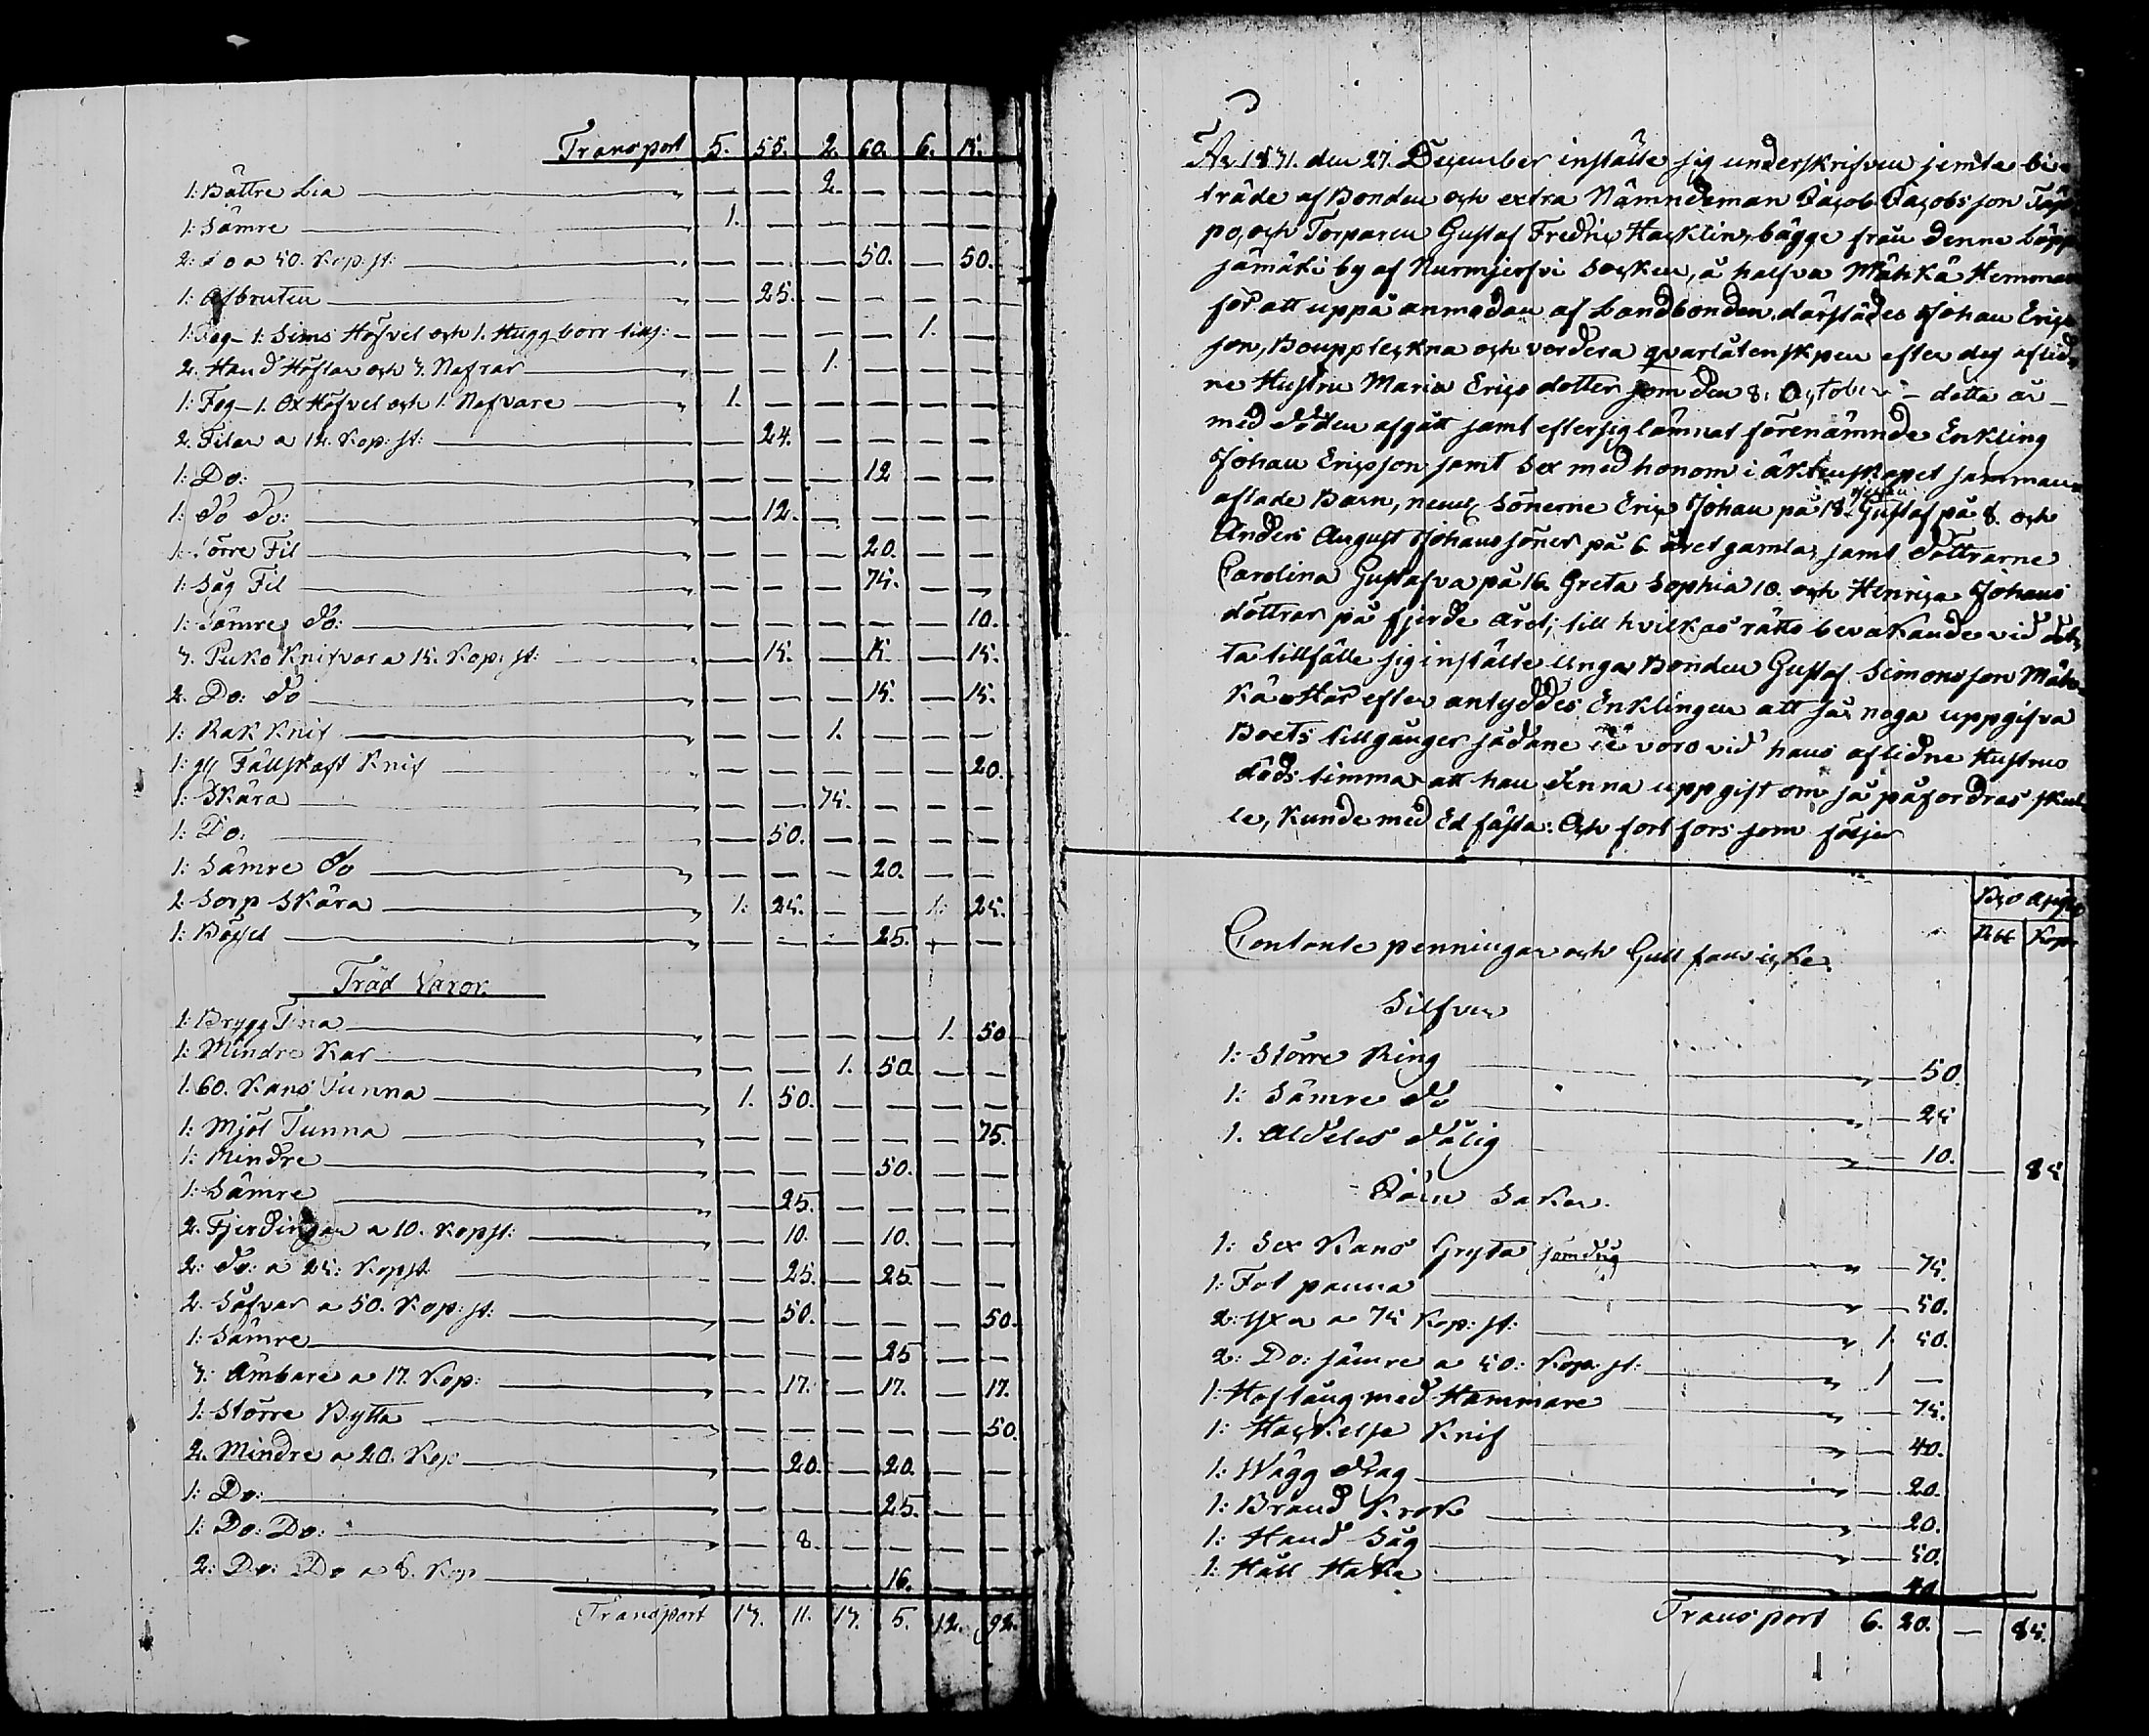 Transport 5. 55. 2. 60. 6. 15.
1: Bättre Lia — — 2. — — —
1: Sämre 1. — — — — —
2: do a 50. Kop: st: — — — 50. — 50.
1: Afbruten — 25. — — — —
1: Fog- 1: Sims Höfvel och 1. Hugg borr — — — — 1. —
2. Hand Höflar och 3. Nafrar — — 1. — — —
1: Fog- 1. Ox Höfvel och 1. Nafvare 1. — — — — —
2. Filar a 12. Kop: st: — 24. — — — —
1: Do: — — — 12 — —
1: do do: — 12. — — — —
1: Större Fil — — — 20. — —
1: Såg Fil — — — 75. — —
1: Sämre do: — — — — — 10.
3. Puko Knifvar a 15. Kop: st: — 15. — 15. — 15.
2. Do: do — — — 15. — 15.
1: Rak Knif — — 1. — — —
1: gl Fällskaft Knif — — — — — 20.
1: Skära — — 75. — — —
1: Do: — 50. — — — —
1: Sämre do — — — 20. — —
2 Sorp Skära 1: 25. — — 1: 25.
1: Bössel — — — 25. — —
Träd Varor.
1: Brygg Tina — — — — 1. 50
1: Mindre Kar — — 1. 50. — —
1. 60. Kans Tunna 1. 50. — — — —
1: Mjöl Tunna — — — — — 75.
1: Mindre — — — 50. — —
1: Sämre — 25. — — — —
2. Fjerdingar a 10. Kop st: — 10. — 10. — —
2: do: a 25: Kop st: — 25. — 25. — —
2. Såfvar a 50. Kop: st: — 50. — — — 50.
1: Sämre — — — 25 — —
3: Ämbare a 17. Kop: — 17. — 17. — 17.
1: Större Bytta — — — — — 50.
2. Mindre a 20. Kop: — 20. — 20. — —
1: Do: — — — 25. — —
1: Do: Do: — 8. — — — —
2: Do: Do a 8. Kop — — — 16. — —
Transport 13. 11. 13. 5. 12. 92.
År 1831. den 27. December instälte sig underskrifven jemte bi-
träde af Bonden och extra Nämndeman Jacob Jacobsson Täp-
po, och Torparen Gustaf Fredric Hacklin, bägge från denne Läpp
jämäki by af Nurmijerfvi Socken, å halfva Mähkä Hemman
för att uppå anmodan af Landbonden därstädes Johan Erics-
son, Bouppteckna och verdera qvarlåtenskpen efter dess aflid-
ne Hustru Maria Erics dotter som den 8: October detta år
med döden afgått samt efter sig lämnat förenämnde Enkling
Johan Ericsson samt Sex med honom i äktenskapet samman
aflade Barn, neml: Sönerne Eric Johan på 18. Gustaf på 8. och
Anders August Johans söner på 6. året gamla, samt döttrarne
Carolina Gustafva på 16. Greta Sophia 10. och Henrica Johans
döttrar på fjerde året; till hvilkas rätts bevakande vid det-
ta tillfälle sig instälte Unga Bonden Gustaf Simonsson Mäh-
kä Här efter antyddes Enklingen att så noga uppgifva
Boets tillgångar sådane de voro vid hans aflidna Hustrus
döds timma att han denna uppgift om så påfordras skul-
le, kunde med Ed fästa: Och fort fors som följer
Bco Assign
Rbl Kop
Contante penningar och Gull fans icke
Silfver
1: Större Ring — 50.
1: Sämre do — 25
1. Aldeles dålig — 10. — 85
Järn Saker.
1: Sex Kans Gryta söndrig — 75.
1: Fot panna — 50.
2: Yxa a 75 Kop: st: 1 50.
2: Do: sämre a 50: Kop: st: 1 —
1: Hof tång med Hammare — 75.
1: Hackelse Knif — 40.
1: Wägg drag — 20.
1: Brand Krok — 20.
1: Hand Såg — 50.
1: Håll Hake — 40
Transport 6. 20. — 85.